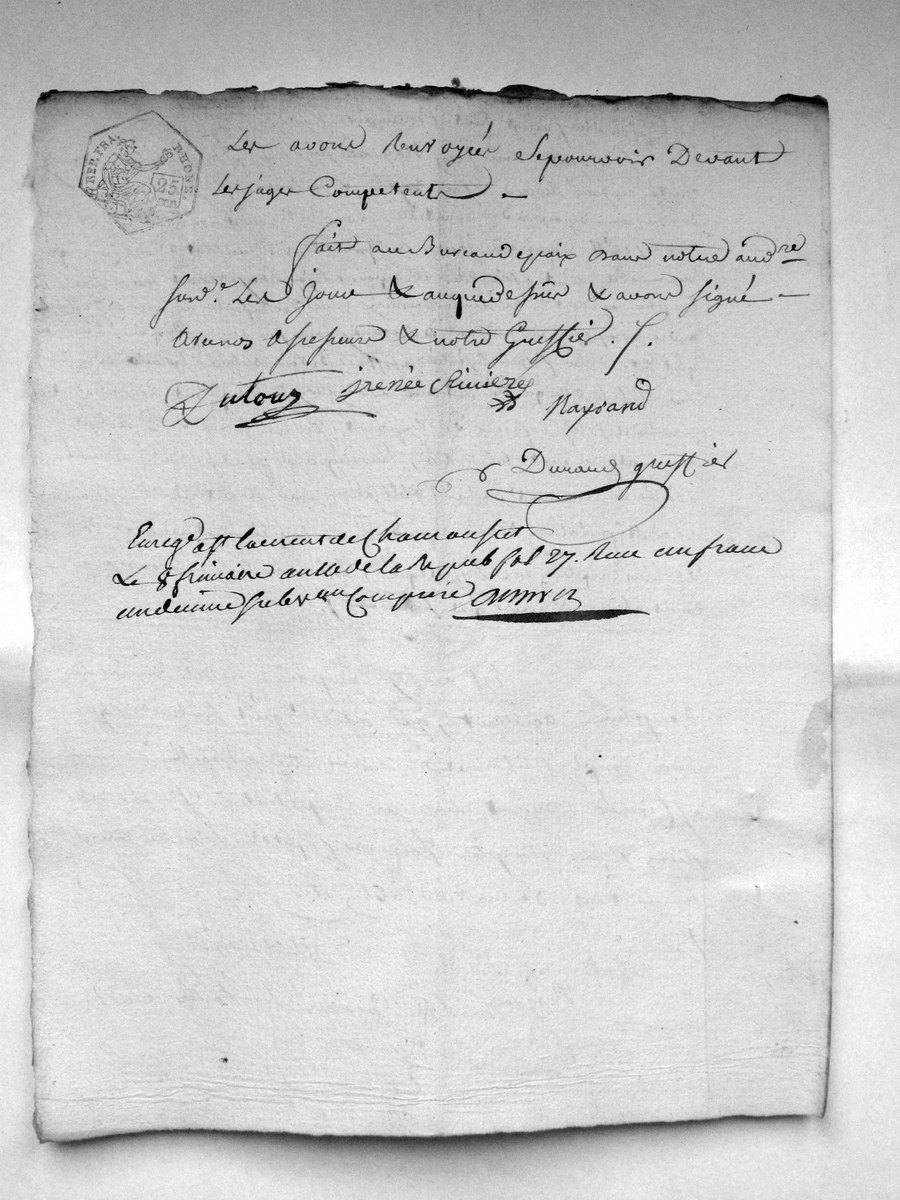 REP. FRA. RHONE
25
Les avons renvoyés Se pourvoir Devant
Les juges Competents -
fait au Bureau de paix dans notre aud.re
susd.e Les Jour & an que dessus & avons signé -
avec nos assesseurs & notre Greffier . /.
Dutour jrenée Riviere Naysand
Durand greffier
Enreg.é a St laurent de Chamousset
Le 8 frimaire an de la Repub fol 27. Reçu un franc
un decime